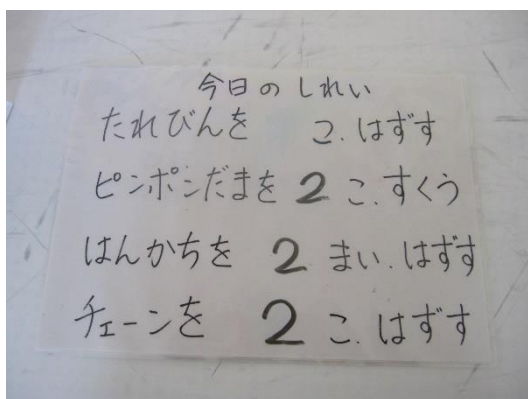 今日のしれい
たれびんを こ.はずす
ピンポンだまを 2 こ.すくう
はんかちを 2 まい.はずす
チェーンを 2 こ.はずす